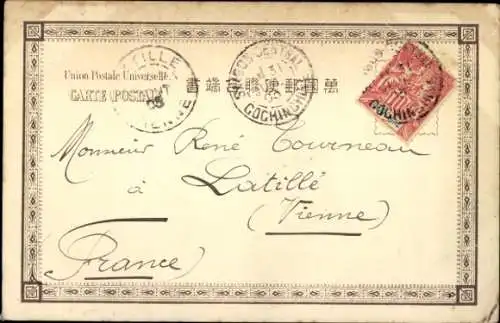 Union Postale Universelle
CARTE POSTALE
書端郵便聯合國萬
SAIGON CENTRAL
COCHINCHINE
COCHINCHINE
Monsieur René Tourneau
à
Latillé
(Vienne)
France